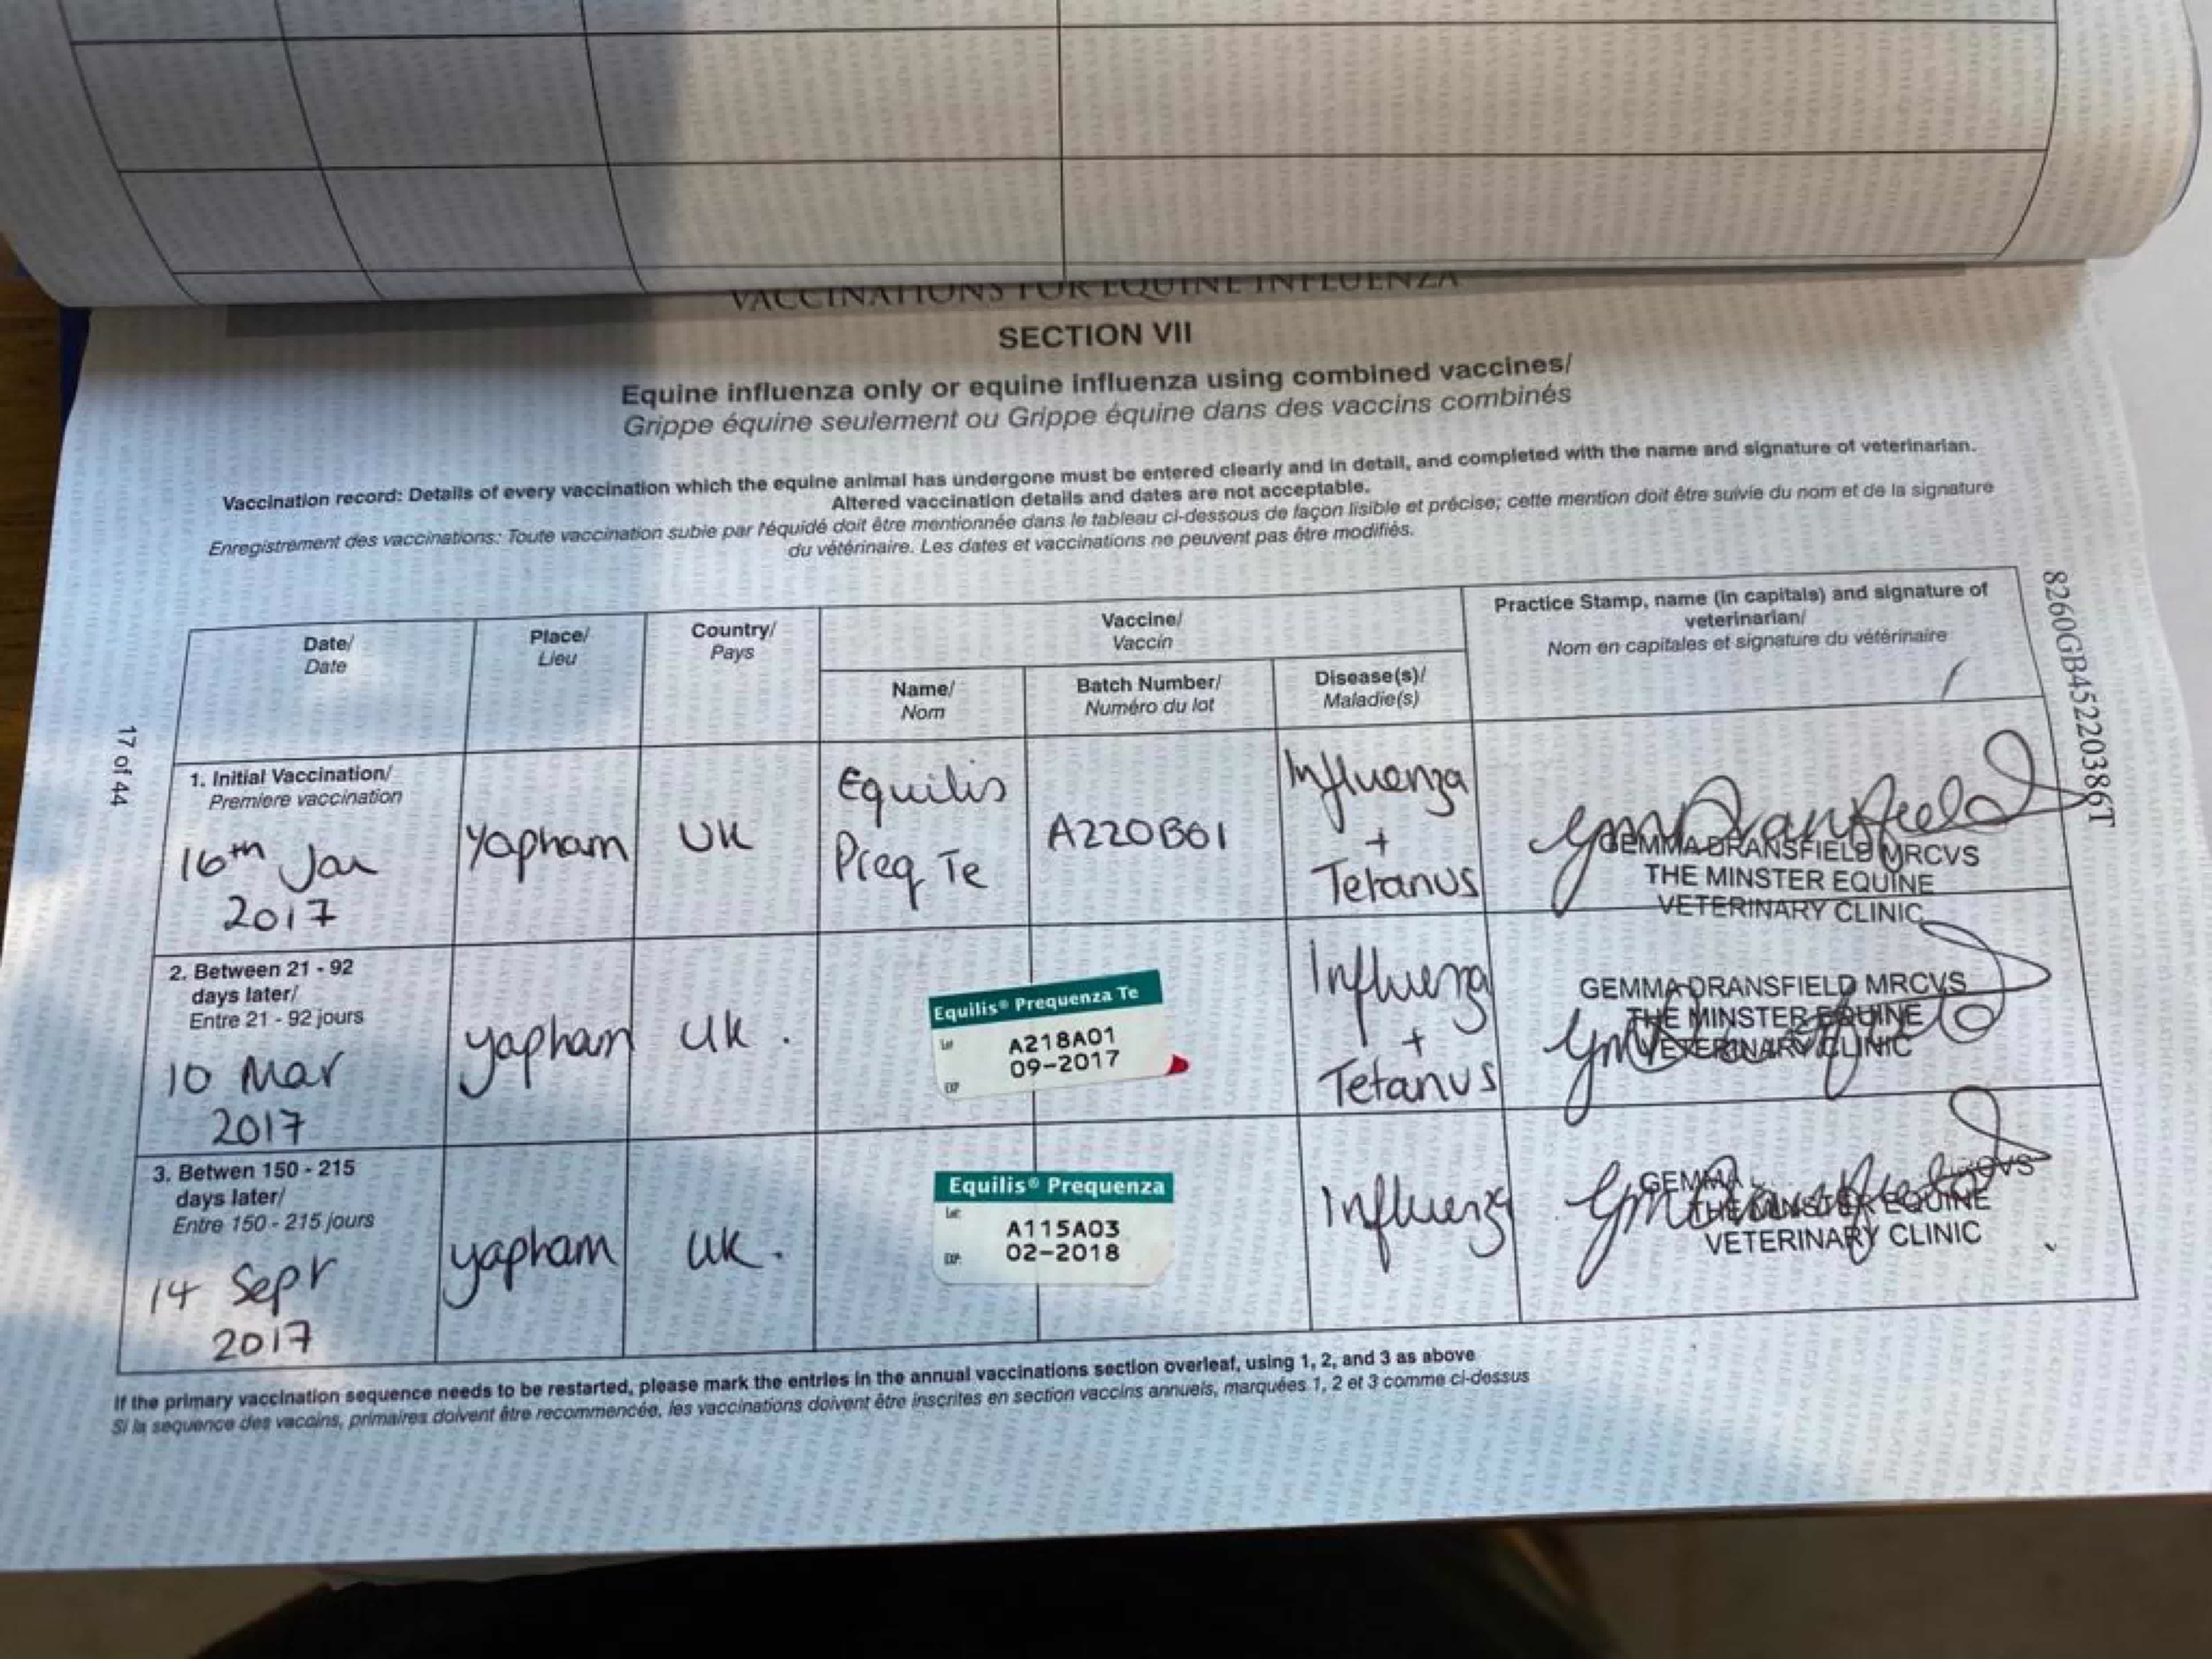 VACCINATIONS FOR EQUINE INFLUENZA
SECTION VII
Equine influenza only or equine influenza using combined vaccines/
Grippe équine seulement ou Grippe équine dans des vaccins combinés
Vaccination record: Details of every vaccination which the equine animal has undergone must be entered clearly and in detail, and completed with the name and signature of veterinarian.
Altered vaccination details and dates are not acceptable.
Enregistrement des vaccinations: Toute vaccination subie par l'équidé doit être mentionnée dans le tableau ci-dessous de façon lisible et précise; cette mention doit être suivie du nom et de la signature
du vétérinaire. Les dates et vaccinations ne peuvent pas être modifiés.
Date/
Date
Place/
Lieu
Country/
Pays
Vaccine/
Vaccin
Name/
Nom
Batch Number/
Numéro du lot
Disease(s)/
Maladie(s)
Practice Stamp, name (in capitals) and signature of
veterinarian/
Nom en capitales et signature du vétérinaire
1. Initial Vaccination/
Premiere vaccination
16th Jan
2017
Yapham
UK
Equilis
Preq Te
A220B01
Influenza
+
Tetanus
GEMMA DRANSFIELD MRCVS
THE MINSTER EQUINE
VETERINARY CLINIC
2. Between 21 - 92
days later/
Entre 21 - 92 jours
10 Mar
2017
yapham
UK.
Equilis® Prequenza Te
Lot
A218A01
09-2017
EXP
Influenza
+
Tetanus
GEMMA DRANSFIELD MRCVS
THE MINSTER EQUINE
VETERINARY CLINIC
3. Betwen 150 - 215
days later/
Entre 150 - 215 jours
14 Sept
2017
yapham
UK.
Equilis® Prequenza
Lot:
A115A03
EXP: 02-2018
Influenza
GEMMA MRCVS
THE MINSTER EQUINE
VETERINARY CLINIC
If the primary vaccination sequence needs to be restarted, please mark the entries in the annual vaccinations section overleaf, using 1, 2, and 3 as above
Si la sequence des vaccins, primaires doivent être recommencée, les vaccinations doivent être inscrites en section vaccins annuels, marquées 1, 2 et 3 comme ci-dessus
17 of 44
8260GB45220386T